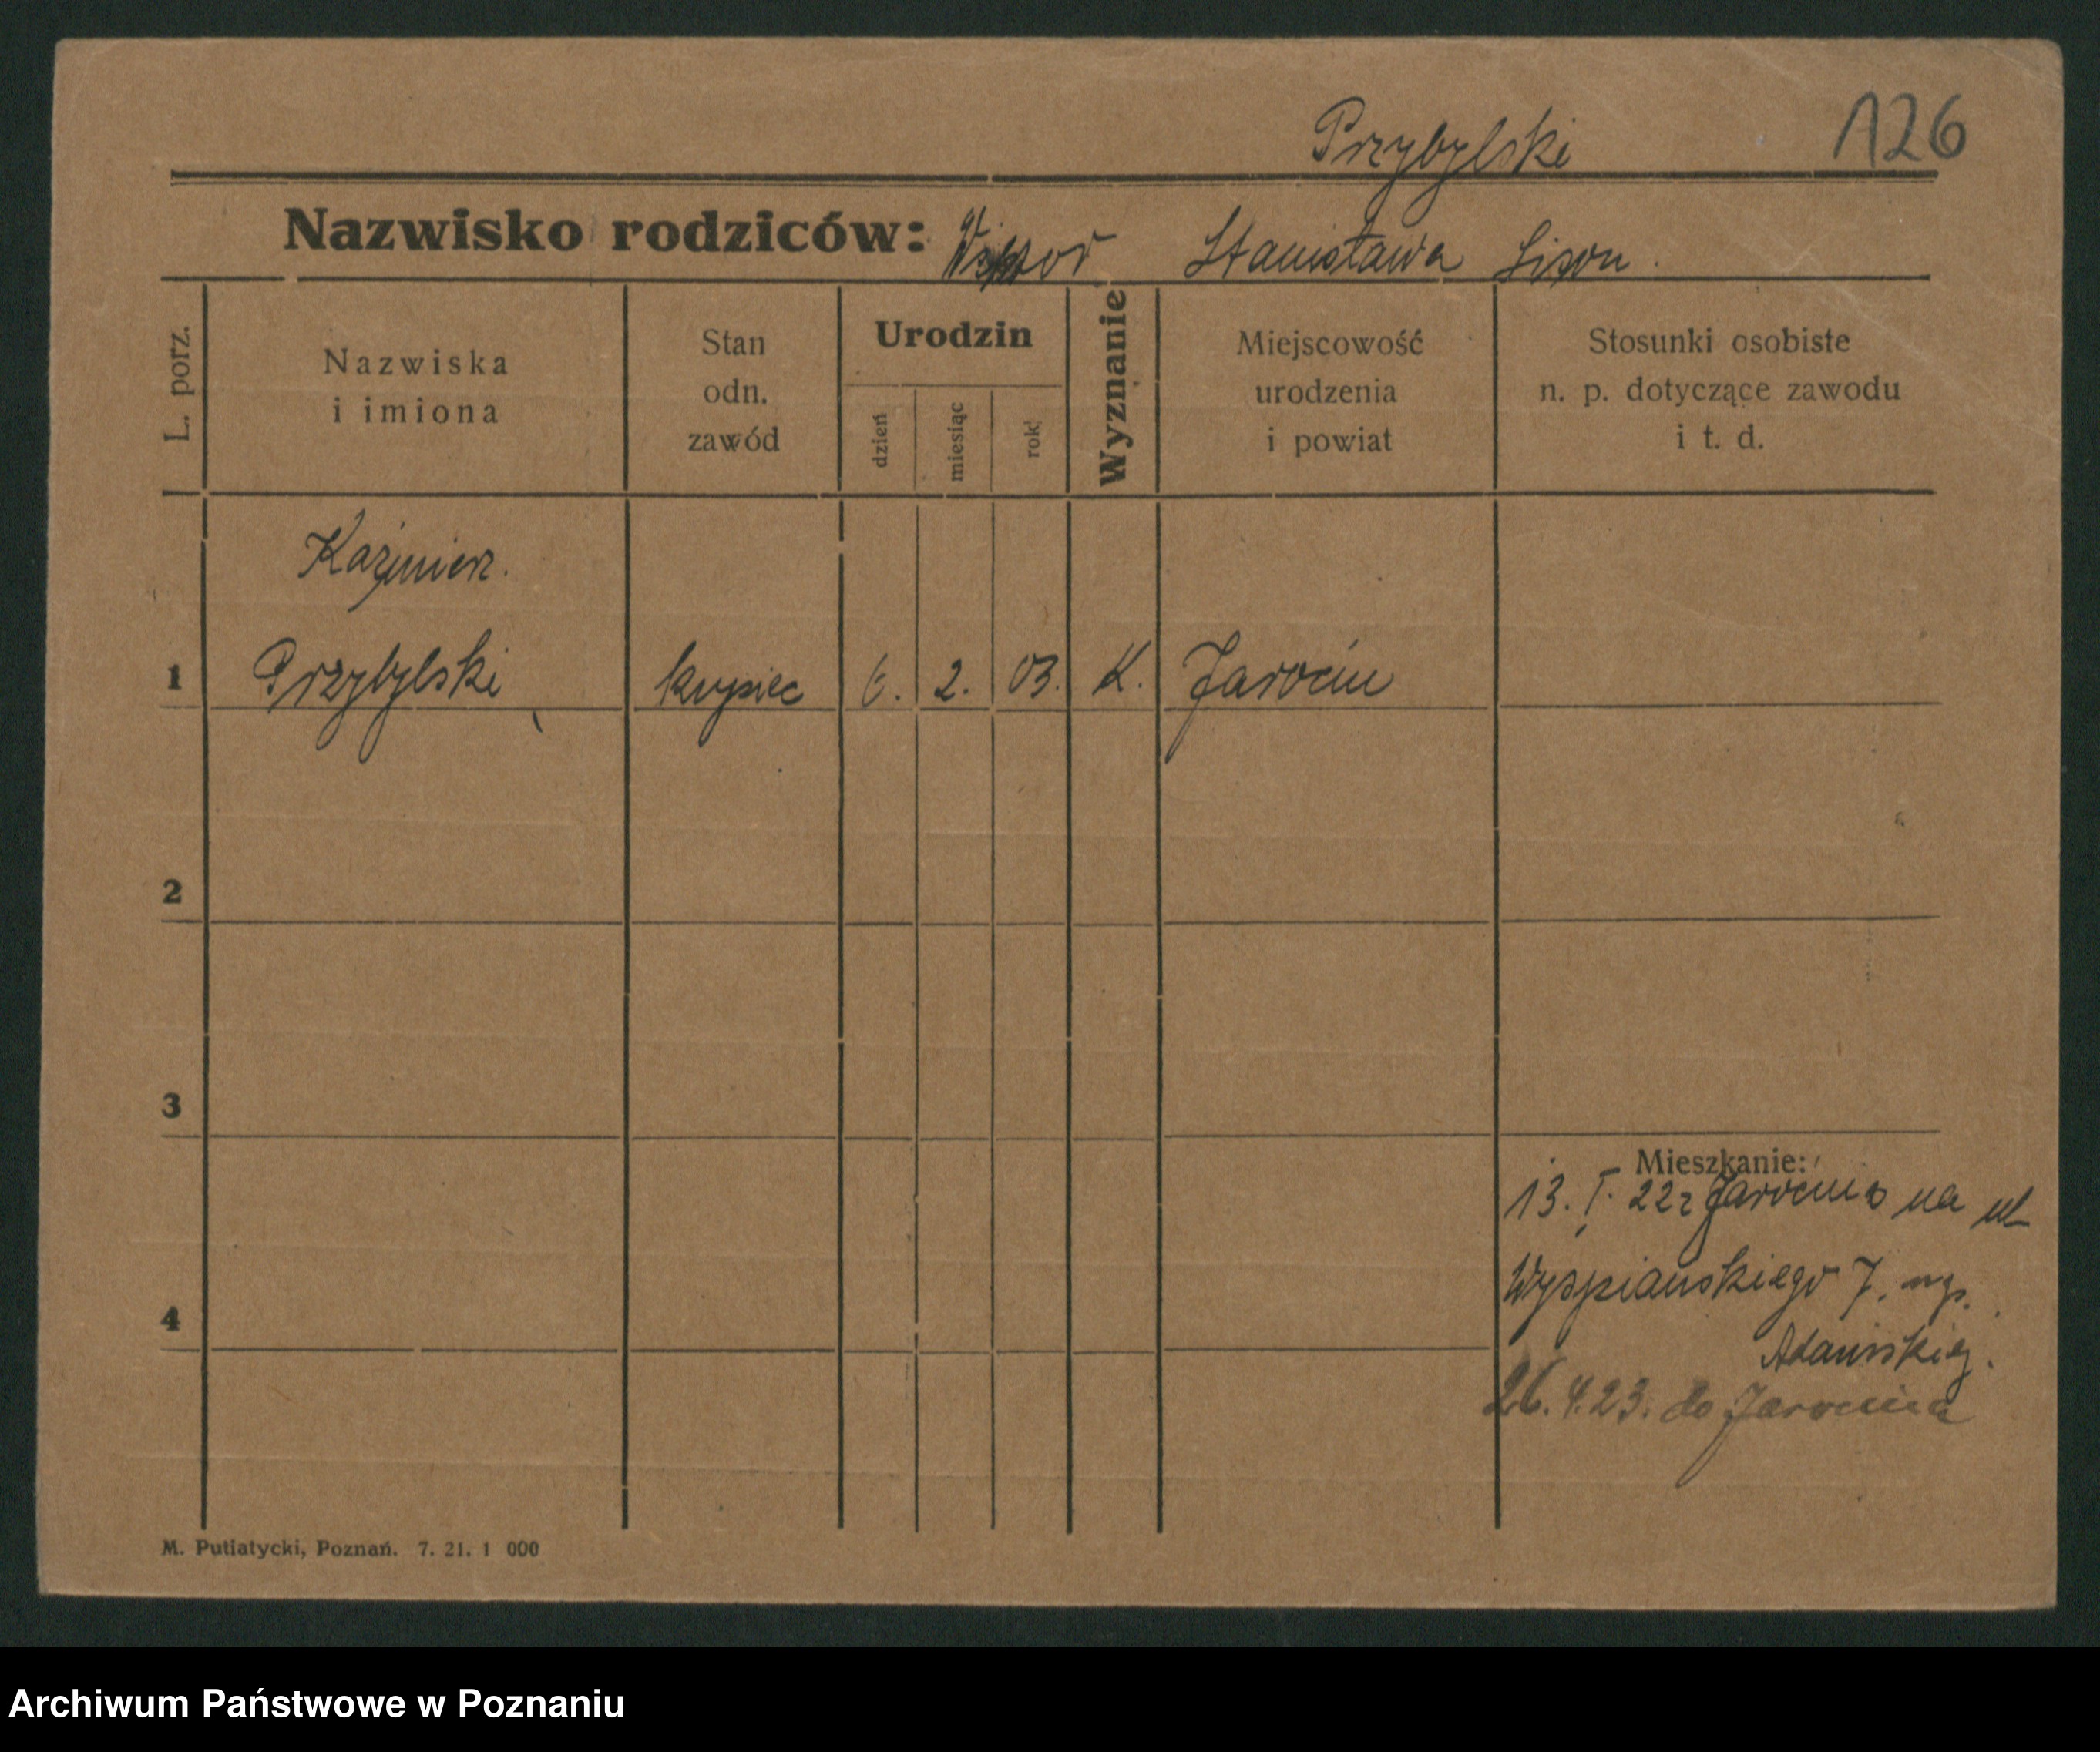 126
Przybylski
Nazwisko rodziców: Wiktor Stanisława
L. porz.
Nazwiska
i imiona
Stan
odn.
zawód
Urodzin
dzień
miesiąc
rok
Wyznanie
Miejscowość
urodzenia
i powiat
Stosunki osobiste
n. p. dotyczące zawodu
i t. d.
Kaźmierz.
1 Przybylski kupiec 6. 2. 03. K. Jarocin
2
3
4
Mieszkanie:
13. I. 22 z Jarocina na ul
Wyspiańskiego 7.
26. 4. 23. do Jarocina
M. Putiatycki, Poznań. 7. 21. 1 000
Archiwum Państwowe w Poznaniu